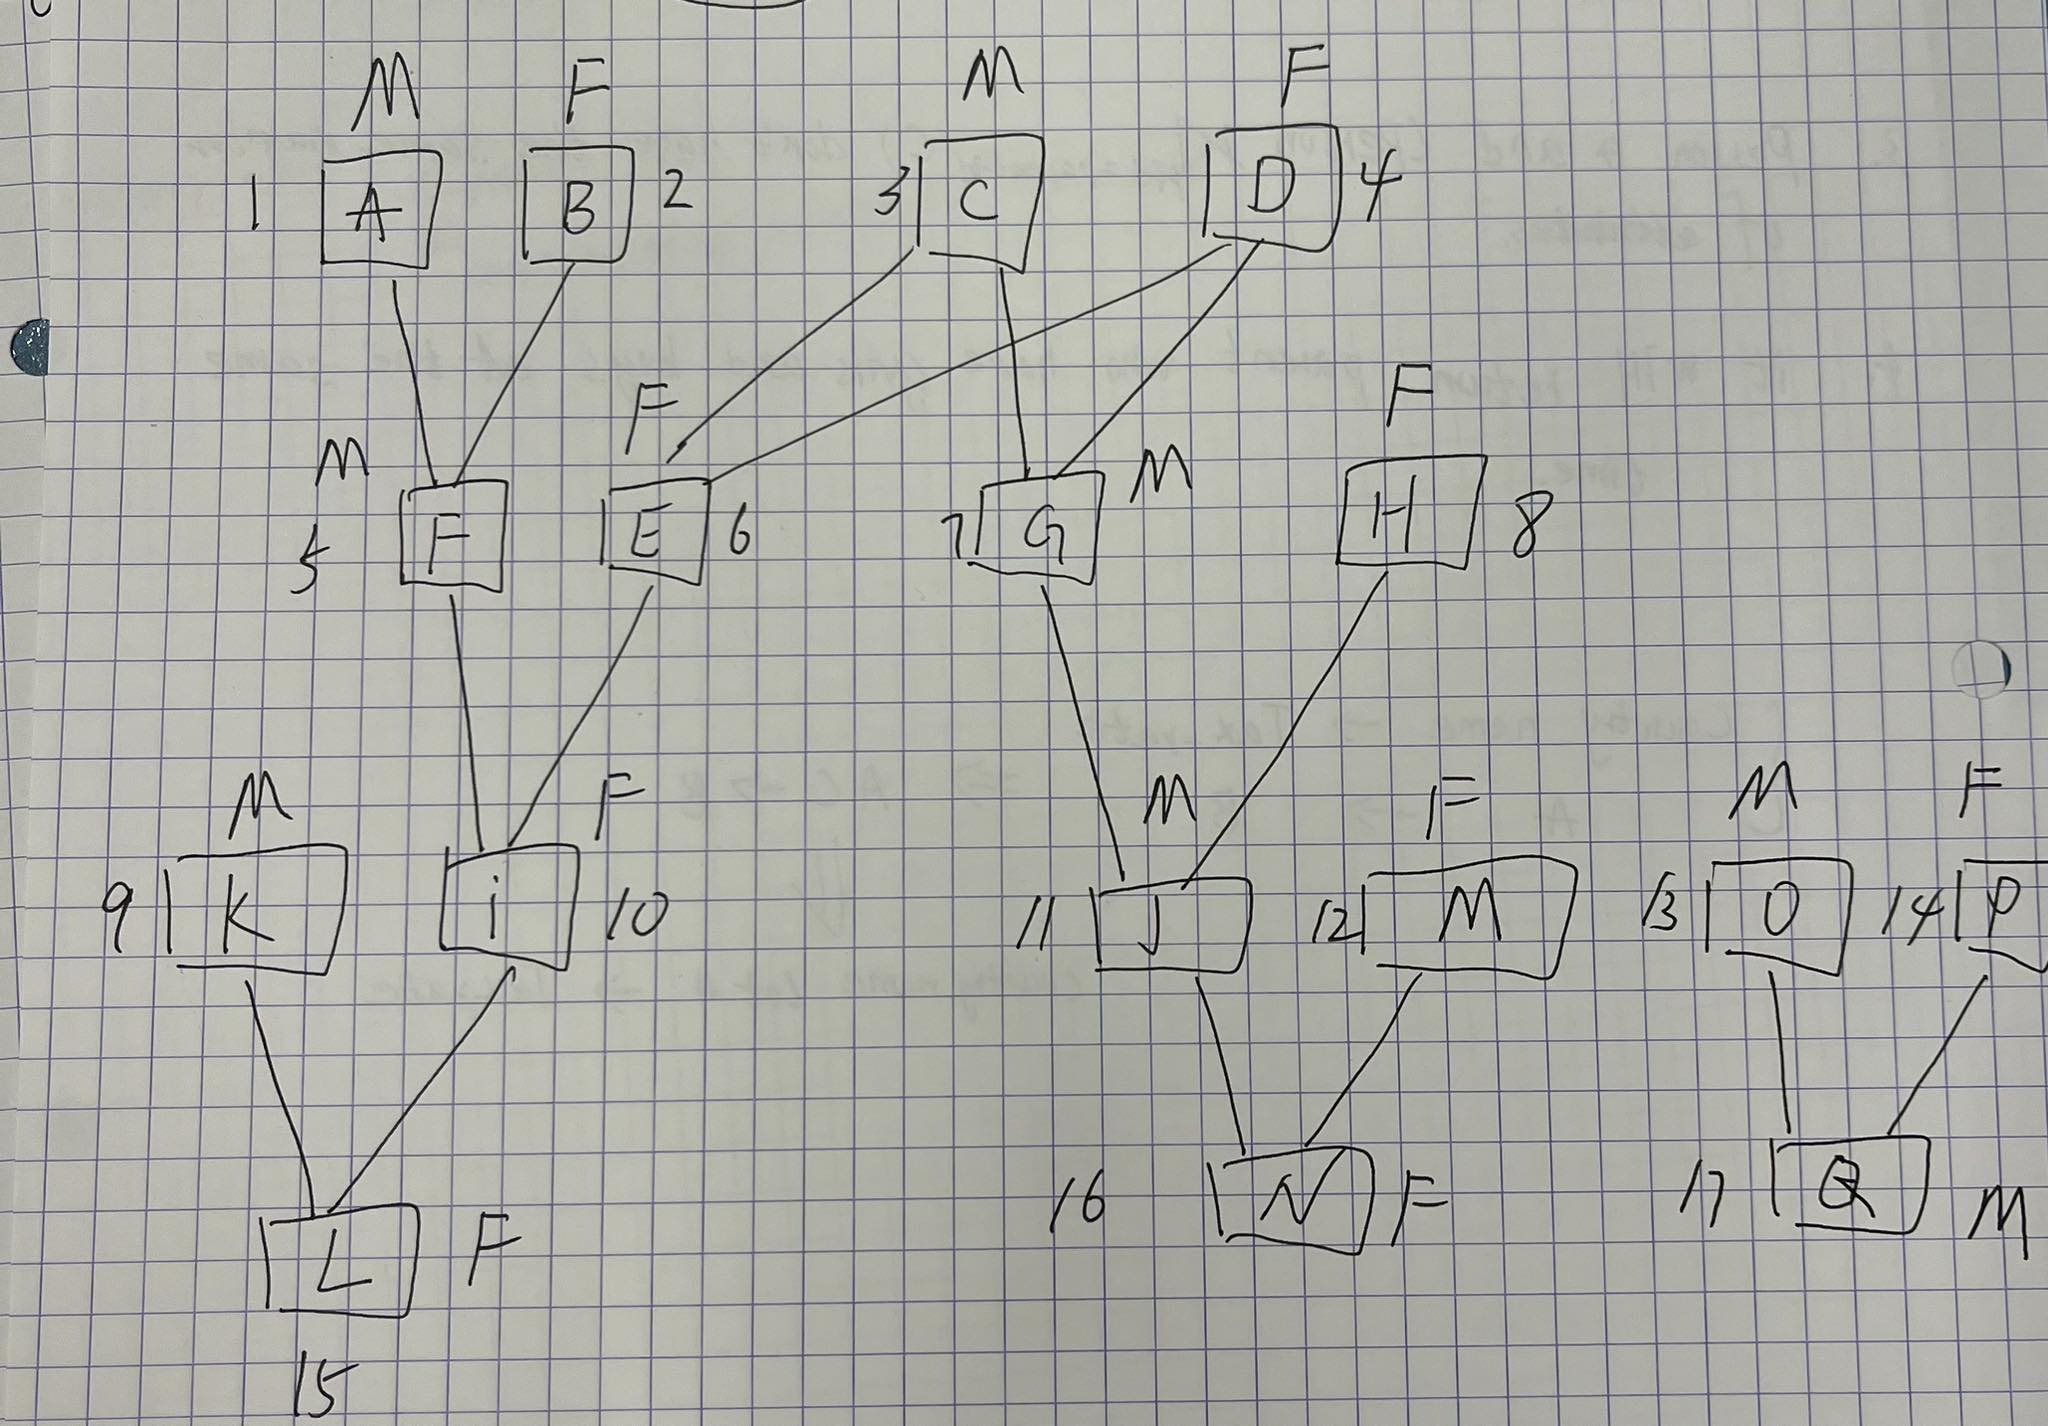 M F M F
1 A B 2 3 C D 4
F F
M M
5 F E 6 7 G H 8
M F M F M F
9 K i 10 11 J 12 M 13 O 14 P
16 N F 17 Q M
L F
15